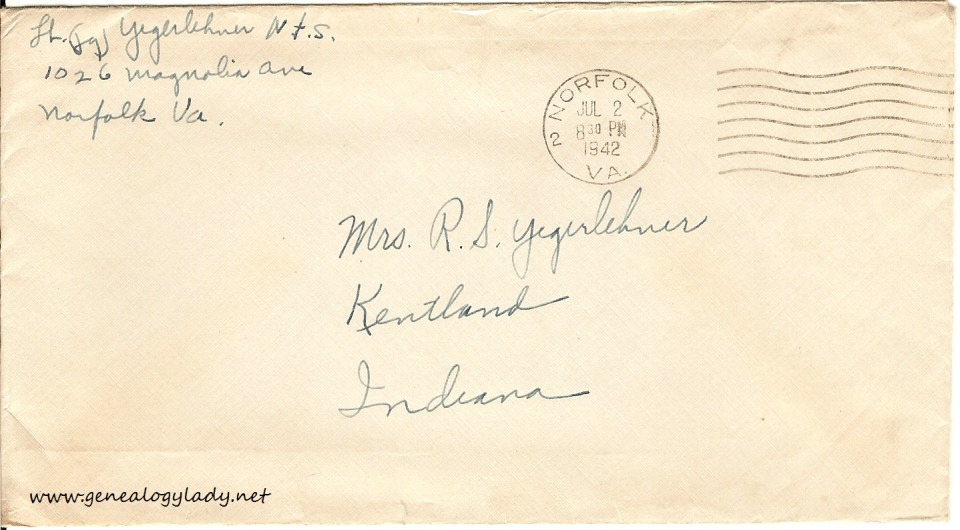 Lt. (jg) Yegerlehner N.F.S.
1026 Magnolia Ave
Norfolk Va.
2 NORFOLK VA.
JUL 2
8 30 PM
1942
Mrs. R. S. Yegerlehner
Kentland
Indiana
www.genealogylady.net